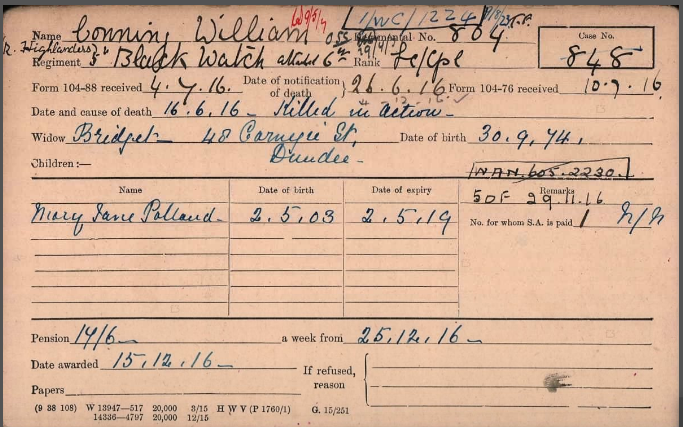 W9/5/7 1/WC/1224
Name Conning William Regimental No. 804 Case No.
(R. Highlanders) 848
Regiment 5th Black Watch attached 6th Rank Lc/Cpl
Form 104-88 received 4.7.16. Date of notification of death 26.6.16 Form 104-76 received 10.7.16
Date and cause of death 16.6.16 - Killed in action -
Widow Bridget 48 Carnegie St, Date of birth 30.9.74.
Dundee -
Children :— WAN.605.2230.
Name Date of birth Date of expiry Remarks
SOF 29.11.16
Mary Jane Polland 2.5.03 2.5.19 No. for whom S.A. is paid 1 N/N
Pension 14/6 a week from 25.12.16
Date awarded 15.12.16 If refused, reason
Papers
(9 38 108) W 13947—517 20,000 3/15 H W V (P 1760/1) G. 15/251
14336—4797 20,000 12/15